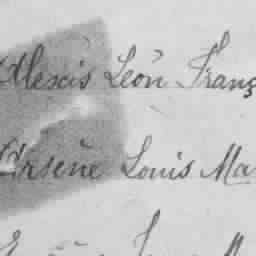 Alexis Léon Franç
Arsène Louis Ma